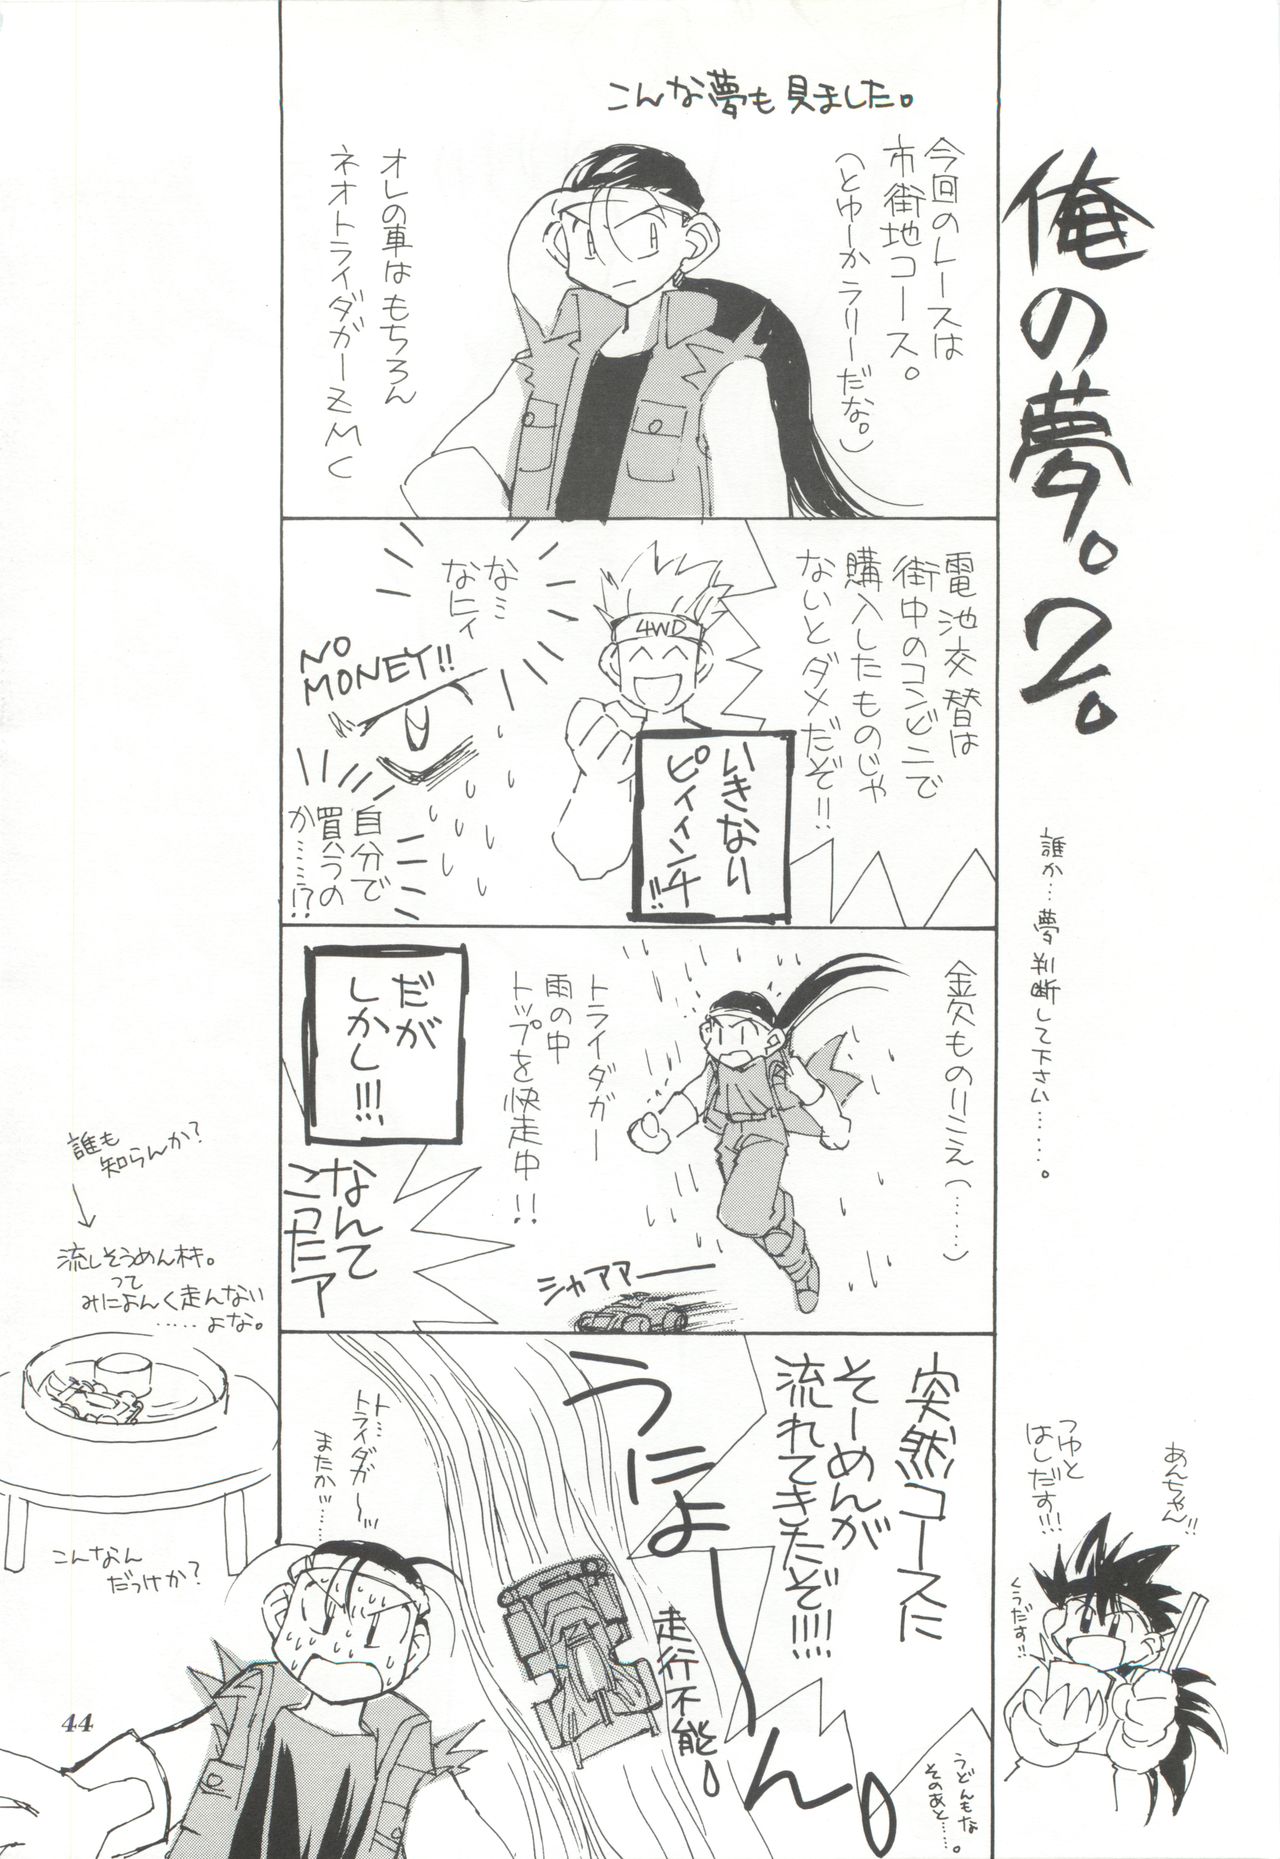 俺の夢。2。
誰か…夢判断して下さい……。
こんな夢も見ました。
今回のレースは
市街地コース。
(とゆーかラリーだな。)
オレの車はもちろん
ネオトライダガーZMC
電池交替は
街中のコンビニで
購入したものじゃ
ないとダメだぞ!!
4WD
いきなり
ピィィンチ!!
なミ
なにィ
NO
MONEY!!
自分で
買うの
か……!?
金欠ものりこえ(……)
トライダガー
雨の中
トップを快走中!!
シャアアー
だが
しかし!!!
なんて
こったァ
突然コースに
そーめんが
流れてきたぞ!!!!
うにょーん。
走行不能。
うどんもな
そのあと……。
ト…
トライダガ〜〜
またか……
誰も
知らんか?
流しそうめん材キ。
って
みによんく走んない
……よな。
こんなん
だっけか?
あんちゃん!!
つゆと
はしだす!!!
くうだす!!
44